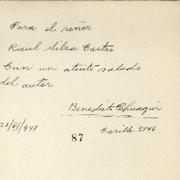 Para el señor
Raul Silva Castro
Con un atento saludo
del autor
Benedicto Chuaqui
21/VI/941
Carillo 3446
87